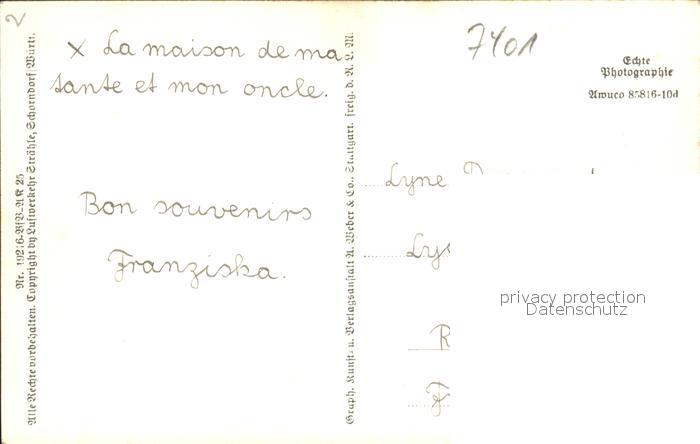 x La maison de ma
tante et mon oncle.
Bon souvenirs
Franziska.
7401
Echte
Photographie
Awuco 85816-10d
Lyne
privacy protection
Datenschutz
Alle Rechte vorbehalten. Copyright by Luftverkehr Strähle, Schorndorf Württ.
Graph. Kunst- u. Verlagsanstalt A. Weber & Co., Stuttgart. freig. d. R. L. M.